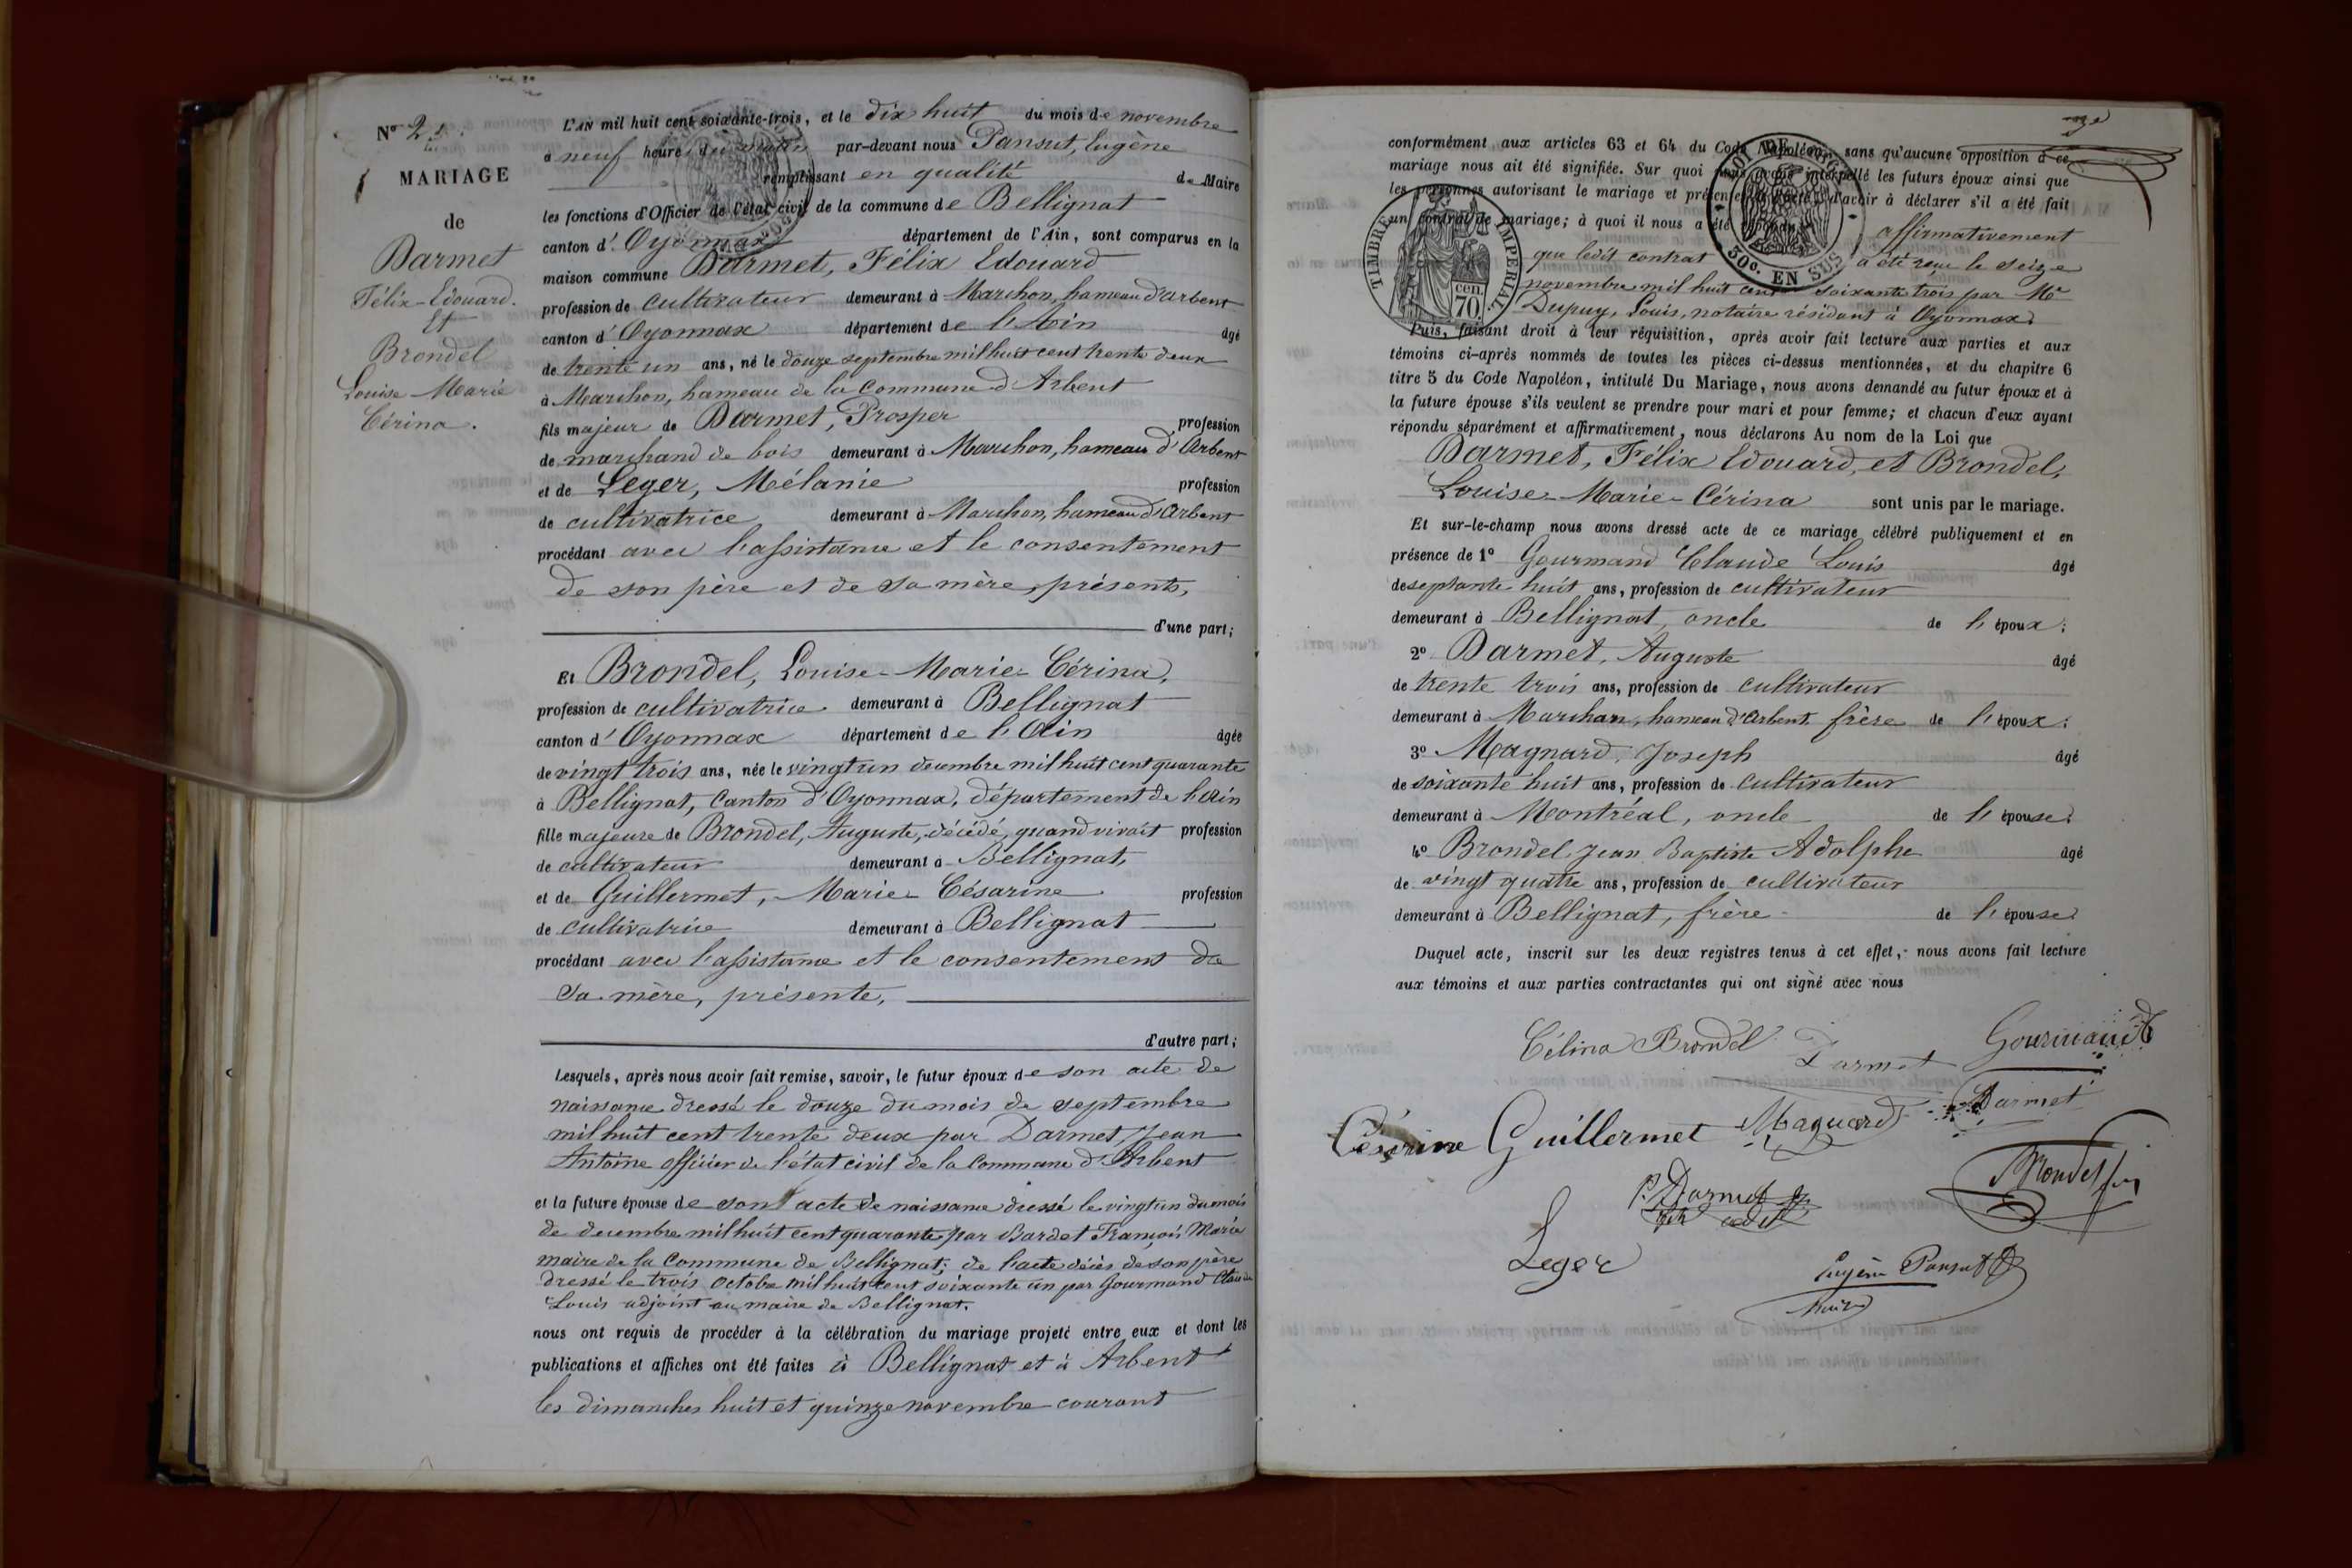 N° 2.
MARIAGE
de
Darmet
Félix-Edouard.
Et
Brondel
Louise Marie
Cérina.
L'AN mil huit cent soixante-trois, et le dix huit du mois de novembre
à neuf heures du matin par-devant nous Pansut, Eugène
remplissant en qualité de Maire
les fonctions d'Officier de l'état civil de la commune de Bellignat
canton d'Oyonnax département de l'Ain, sont comparus en la
maison commune Darmet, Félix Edouard
profession de cultivateur demeurant à Marchon, hameau d'Arbent
canton d'Oyonnax département de l'Ain âgé
de trente un ans, né le douze septembre mil huit cent trente deux
à Marchon, hameau de la commune d'Arbent
fils majeur de Darmet, Prosper profession
de marchand de bois demeurant à Marchon, hameau d'Arbent
et de Leger, Mélanie profession
de cultivatrice demeurant à Marchon, hameau d'Arbent
procédant avec l'assistance et le consentement
de son père et de sa mère, présents,
d'une part;
Et Brondel, Louise-Marie-Cérina,
profession de cultivatrice demeurant à Bellignat
canton d'Oyonnax département de l'Ain âgée
de vingt trois ans, née le vingt un decembre mil huit cent quarante
à Bellignat, Canton d'Oyonnax, département de l'Ain
fille majeure de Brondel, Auguste, décédé, quand vivait profession
de cultivateur demeurant à Bellignat,
et de Guillermet, Marie Césarine profession
de cultivatrice demeurant à Bellignat
procédant avec l'assistance et le consentement de
sa mère, présente,
d'autre part;
Lesquels, après nous avoir fait remise, savoir, le futur époux de son acte de
naissance dressé le douze du mois de septembre
mil huit cent trente deux par Darmet, Jean
Antoine officier de l'état civil de la commune d'Arbent
et la future épouse de son acte de naissance dressé le vingt un du mois
de decembre mil huit cent quarante, par Bardet François Marie
maire de la Commune de Bellignat; de l'acte décès de son père
dressé le trois octobre mil huit cent soixante un par Gourmand Claude
Louis adjoint au maire de Bellignat.
nous ont requis de procéder à la célébration du mariage projeté entre eux et dont les
publications et affiches ont été faites à Bellignat et à Arbent
les dimanches huit et quinze novembre courant
conformément aux articles 63 et 64 du Code Napoléon, sans qu'aucune opposition à ce
mariage nous ait été signifiée. Sur quoi nous avons interpellé les futurs époux ainsi que
les personnes autorisant le mariage et présentes à l'acte, d'avoir à déclarer s'il a été fait
un contrat de mariage; à quoi il nous a été répondu affirmativement
que ledit contrat a été reçu le seize
novembre mil huit cent soixante trois par Me
Dupuy, Louis, notaire résidant à Oyonnax.
TIMBRE IMPERIAL
70 cen.
50c. EN SUS
Puis, faisant droit à leur réquisition, après avoir fait lecture aux parties et aux
témoins ci-après nommés de toutes les pièces ci-dessus mentionnées, et du chapitre 6
titre 5 du Code Napoléon, intitulé Du Mariage, nous avons demandé au futur époux et à
la future épouse s'ils veulent se prendre pour mari et pour femme; et chacun d'eux ayant
répondu séparément et affirmativement, nous déclarons Au nom de la Loi que
Darmet, Félix Edouard, et Brondel,
Louise-Marie-Cérina sont unis par le mariage.
Et sur-le-champ nous avons dressé acte de ce mariage célébré publiquement et en
présence de 1° Gourmand Claude Louis âgé
de septante huit ans, profession de cultivateur
demeurant à Bellignat, oncle de l'époux;
2° Darmet, Auguste âgé
de trente trois ans, profession de cultivateur
demeurant à Marchon, hameau d'Arbent frère de l'époux;
3° Magnard, Joseph âgé
de soixante huit ans, profession de cultivateur
demeurant à Montréal, oncle de l'épouse;
4° Brondel Jean Baptiste Adolphe âgé
de vingt quatre ans, profession de cultivateur
demeurant à Bellignat, frère de l'épouse
Duquel acte, inscrit sur les deux registres tenus à cet effet, nous avons fait lecture
aux témoins et aux parties contractantes qui ont signé avec nous
Célina Brondel Darmet Gourmand
Césarine Guillermet Magnard Darmet
P. Darmet Brondel
Leger
Eugène Pansut
Maire